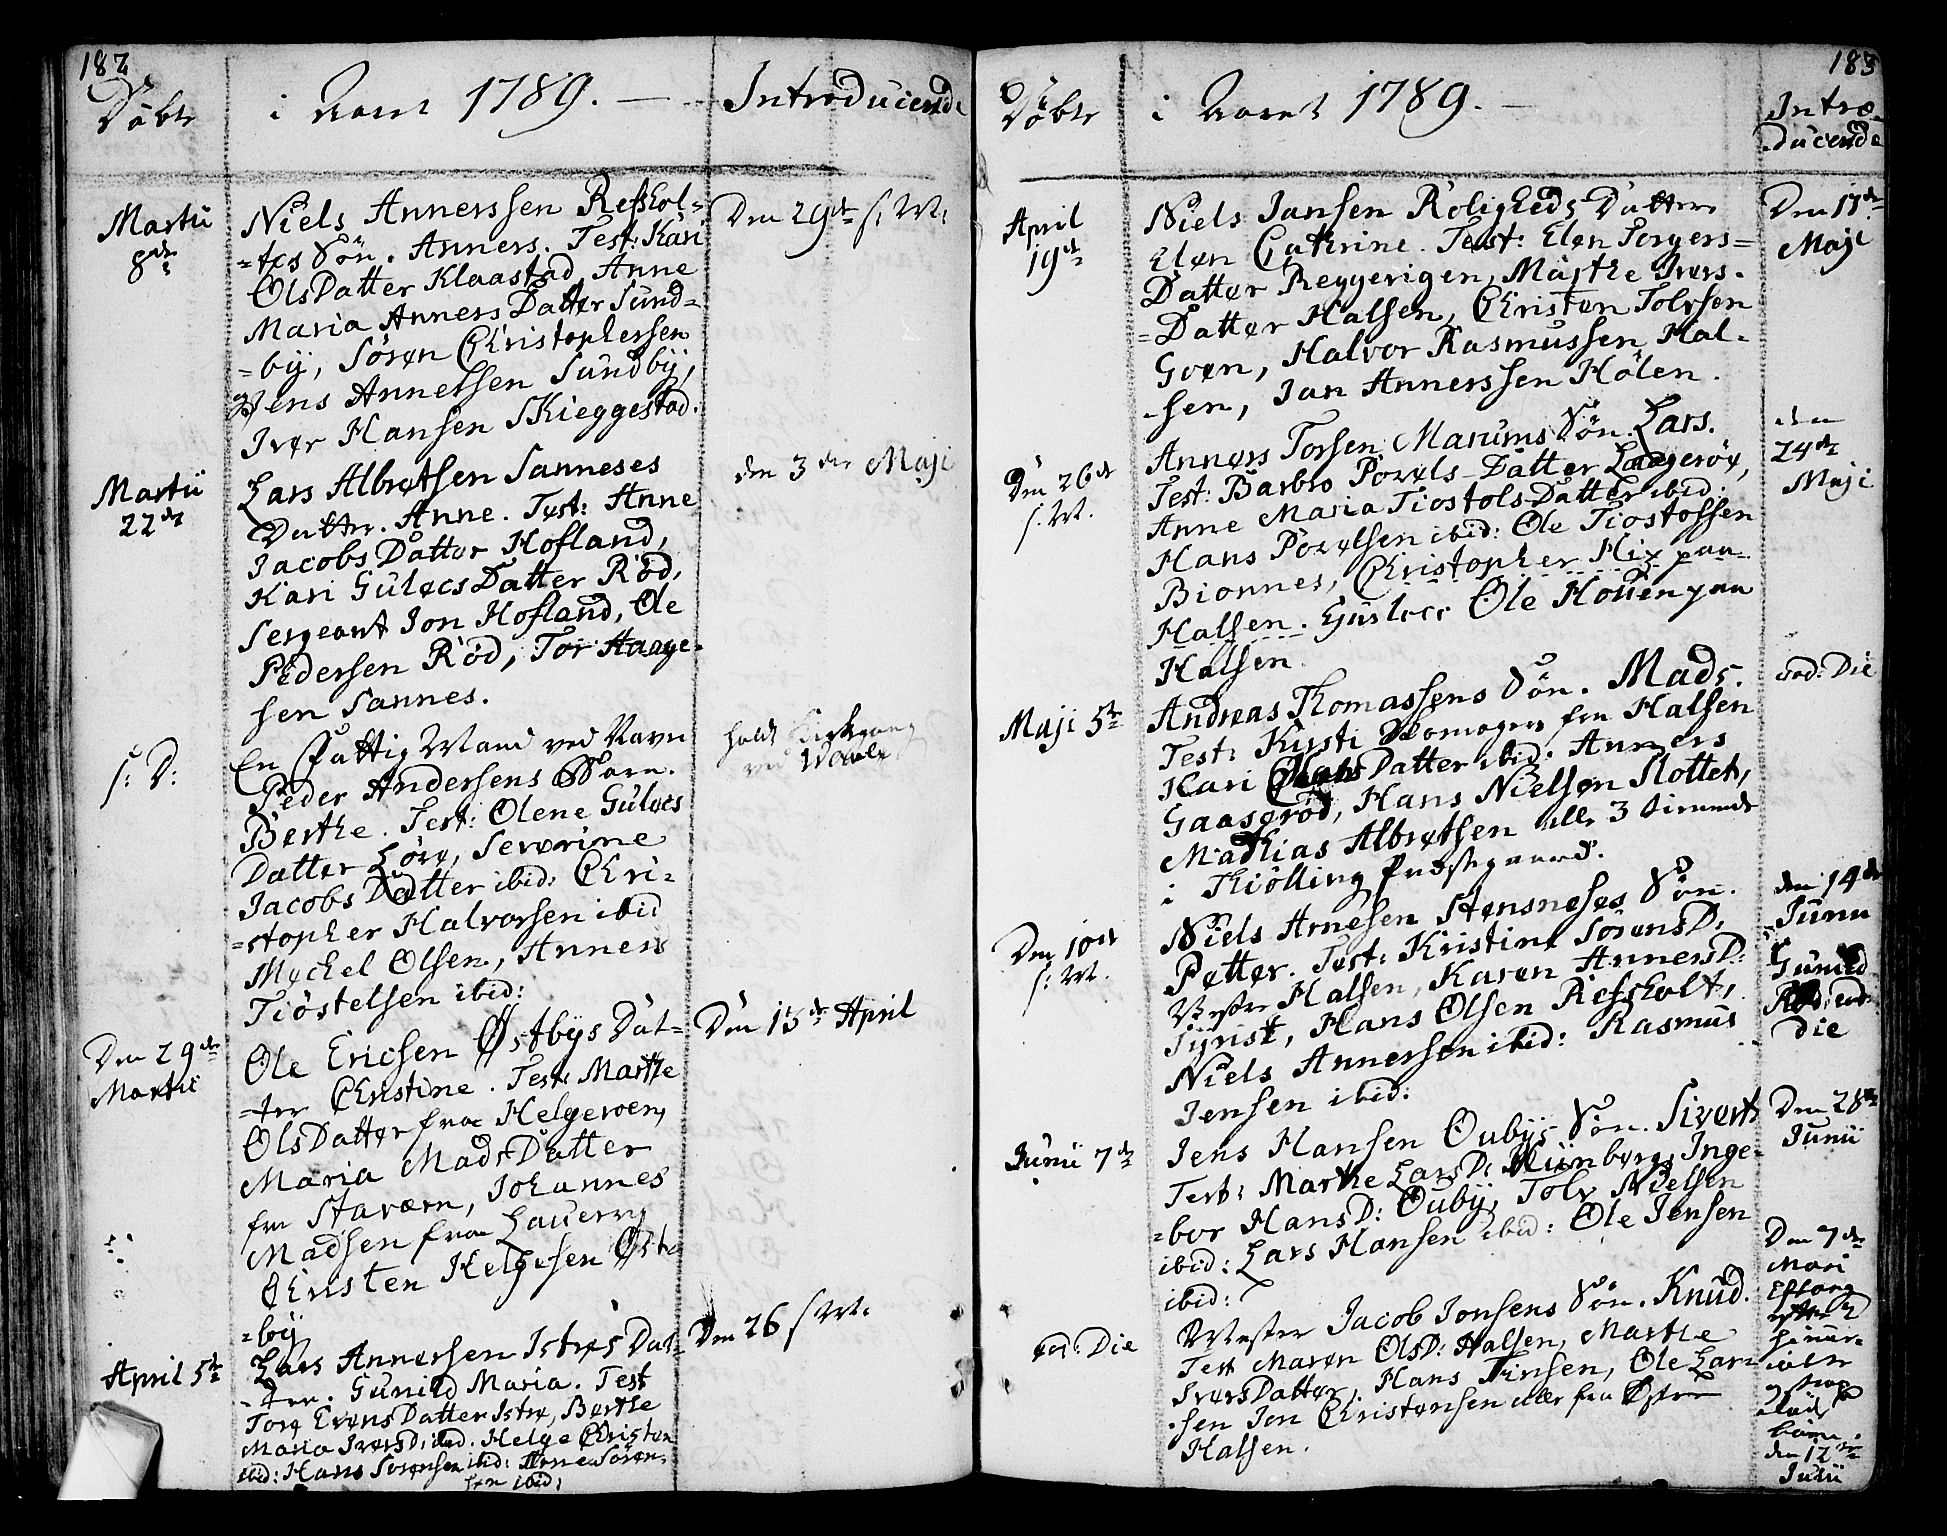 182
Døbte
i Aaret 1789. —
Introducerede
Martii
8de
Niels Annerssen Resshol-
-tes Søn. Anners. Test: Kari
OlsDatter Klaastad, Anne
Maria AnnersDatter Sund-
-by, Søren Christophersen
Jens Annersen Sundby,
Iver Hansen Skieggestad.
Den 29de s: M:
Martii
22de
Lars Albretsen Sanneses
Datter. Anne. Test: Anne
JacobsDatter Hofland,
Kari GulovsDatter Rød,
Sergeant Jon Hofland, Ole
Pedersen Rød, Tor Haage-
sen Sannes.
den 3die Maji
s: D:
En Fattig Mand ved Navn
Peder Andersens Barn.
Berthe. Test: Olene Gulovs
Datter, Severine
JacobsDatter ibid: Chri-
-stopher Halvorsen ibid
Mychel Olsen, Anners
Tiøstelsen ibid:
holdt Kirkegang
ved
Den 29de
Martii
Ole Ericsen Østbys Dat-
-ter Christine. Test: Marthe
OlsDatter fra Helgeroen,
Maria MadsDatter
fra Staværn, Johannes
Madsen fra
Christen Helgesen Øst-
-by
Den 13de April
April 5te
Lars Annersen Istres Dat-
-ter. Gunild Maria. Test
Torg EvensDatter Istre, Berthe
Maria IversD: ibid. Helge Christen
ibid: Hans Sørensen ibid: Arne Søren-
sen ibid:
Den 26 s: M:
183
Døbte
i Aaret 1789. —
Intro-
ducerede
April
19de
Niels Jansen Roligheds Datter
Elen Cathrine. Test: Elen Torgers-
Datter Reggerigen, Marthe Ivers-
-Datter Halsen, Christen Tolvsen
Groen, Halvor Rasmussen Hal-
-sen, Jan Annerssen Hølen.
Den
Maji
Den 26de
s: M.
Anners Torsen Marums Søn. Lars.
Test: Barbro PovelsDatter Laagerøe,
Anne Maria TiostolsDatter ibid:
Hans Povelsen ibid: Ole Tiostolsen
Bionnes, Christopher paa
Halsen. Ole Houen paa
Halsen.
den
24de
Maji
Maji 5te
Andreas Thomassens Søn. Mads.
Test: Kirsti fra Halsen
Kari Datter ibid: Anners
Gaaserød, Hans Nielsen Slottet,
Mathias Albretsen alle 3
i Tiølling Præstegaard.
eod: Die
Den 10de
s: M.
Niels Arnesen Stensneses Søn.
Petter. Test: Kristine SørensD:
Vestre Halsen, Karen AnnersD:
Syrist, Hans Olsen Ressholt,
Niels Annersen ibid: Rasmus
Jensen ibid:
den 14de
Junii
Gunild
Rød: eod:
die
Junii 7de
Jens Hansen Oubys Søn. Sivert
Test: Marthe LarsD: Inge-
-bor HansD: Ouby, Tolv Nielsen
ibid: Lars Hansen ibid: Ole Jensen
ibid:
Den 28de
Junii
eod: Die
Mester Jacob Jonsens Søn. Knud.
Test Maren OlsD: Halsen, Marthe
IversDatter, Hans Finsen, Ole Lar-
-sen Jon Christensen alle fra Østre
Halsen.
Den 7de
barn.
den 12te
Julii